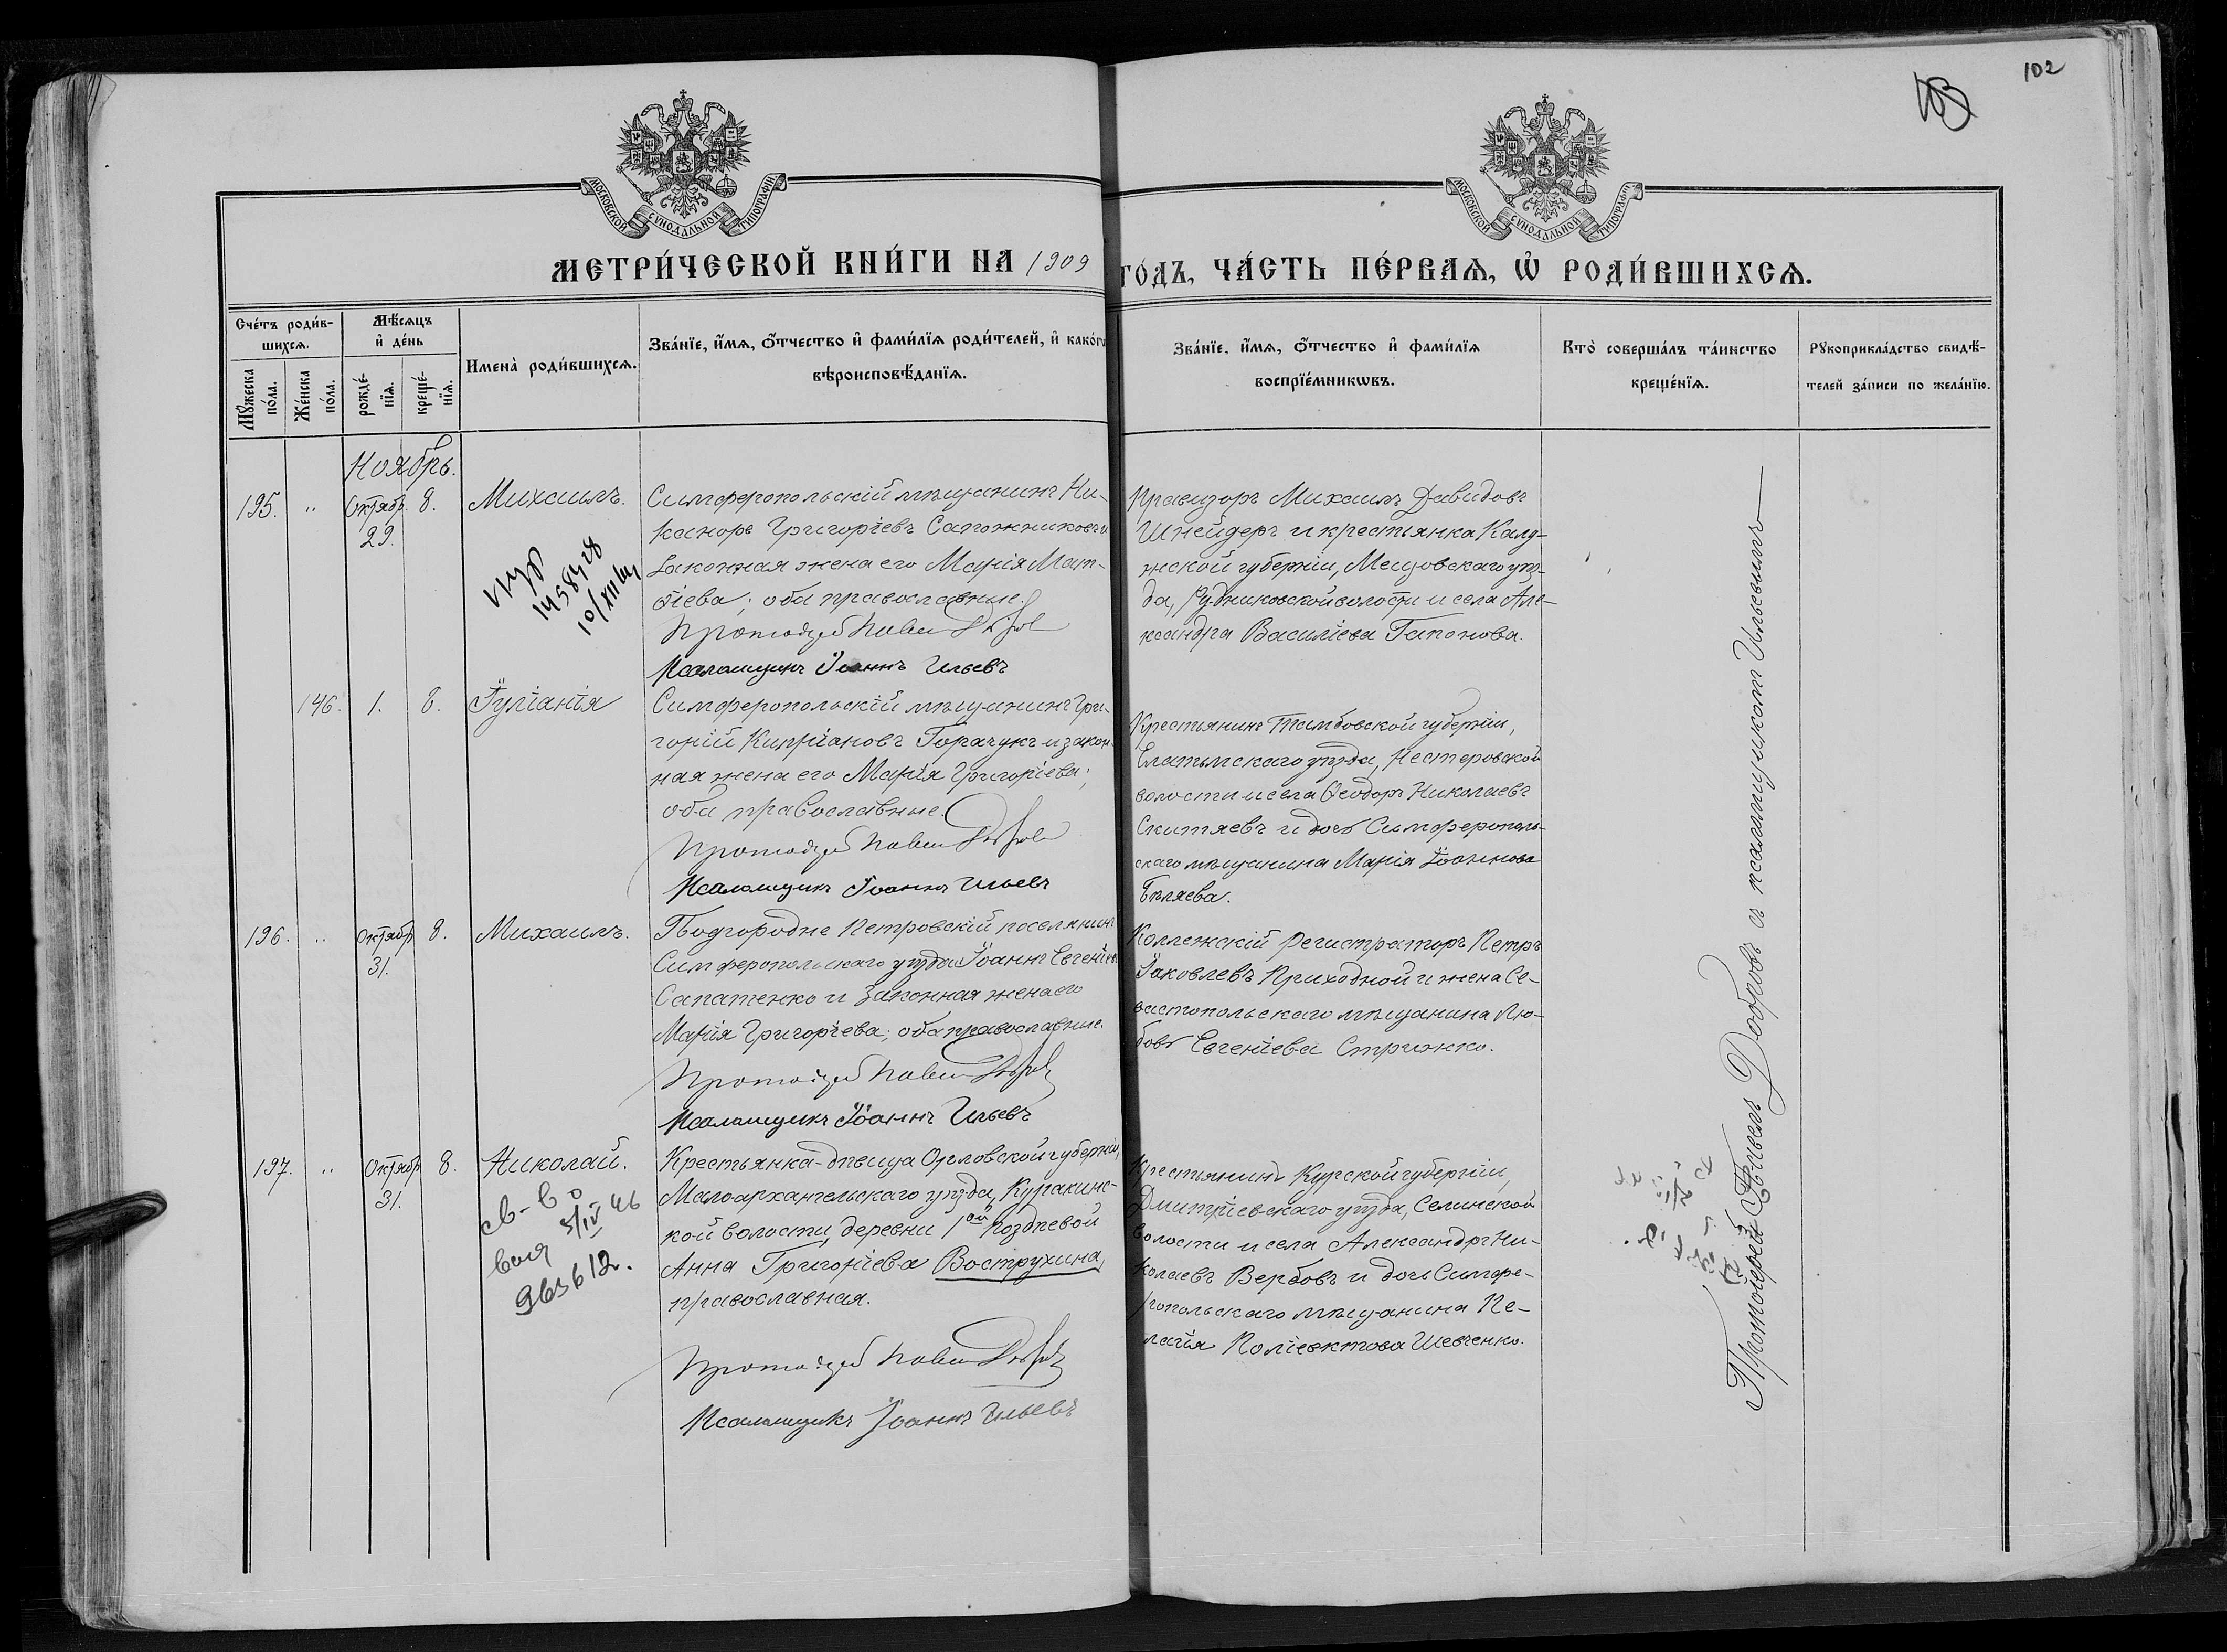 102
103
МОСКОВСКОЙ СѴНОДАЛЬНОЙ ТИПОГРАФІИ
МОСКОВСКОЙ СѴНОДАЛЬНОЙ ТИПОГРАФІИ
МЕТРИ́ЧЕСКОЙ КНИ́ГИ НА 1909
ГО́ДЪ, ЧА́СТЬ ПЕ́РВАѦ, Ѡ РОДИ́ВШИХСѦ.
Сче́тъ роди́в-
шихсѧ.
Мꙋ́жеска
по́ла.
Же́нска
по́ла.
Мѣ́сѧцъ
и҆ де́нь
рожде́-
нїѧ.
креще́-
нїѧ.
Имена̀ роди́вшихсѧ.
Зва́нїе, и҆́мѧ, ѻ҆́тчество и҆ фами́лїѧ роди́телей, и҆ како́гѡ
вѣроисповѣ́данїѧ.
Зва́нїе, и҆́мѧ, ѻ҆́тчество и҆ фами́лїѧ
воспрїе́мникѡвъ.
Кто̀ соверша́лъ та́инство
креще́нїѧ.
Рꙋкоприкла́дство свидѣ́-
телей за́писи по жела́нїю.
Ноябрь.
195. " Октябр. 29. 8. Михаилъ.
Симферопольскій мѣщанинъ Ни-
каноръ Григоріевъ Сапожниковъ и
законная жена его Марія Мат-
ѳіева; оба православные.
Протоіерей Павелъ Добровъ
Псаломщикъ Іоаннъ Ильевъ
Провизоръ Михаилъ Давидовъ
Шнейдеръ и крестьянка Калу-
жской губерніи, Мещовскаго уѣз-
да, Рудниковской волости и села Але-
ксандра Василіева Гапонова.
146. 1. 8. Іуліанія
Симферопольскій мѣщанинъ Гри-
горій Кипріановъ Горачукъ и закон-
ная жена его Марія Григоріева;
оба православные.
Протоіерей Павелъ Добровъ
Псаломщикъ Іоаннъ Ильевъ
Крестьянинъ Тамбовской губерніи,
Елатьмскаго уѣзда, Нестеровской
волости и села Ѳеодоръ Николаевъ
Скитяевъ и дочь Симферополь-
скаго мѣщанина Марія Іоаннова
Бѣляева.
196. " Октябр 31. 8. Михаилъ.
Подгородне Петровскій поселянинъ
Симферопольскаго уѣзда Іоаннъ Евгеніевъ
Сапатенко и законная жена его
Марія Григоріева; оба православные.
Протоіерей Павелъ Добровъ
Псаломщикъ Іоаннъ Ильевъ
Коллежскій регистраторъ Петръ
Іаковлевъ Приходной и жена Се-
вастопольскаго мѣщанина Лю-
бовь Евгеніева Стрижко.
197. " Октябр 31. 8. Николай.
св-во
5/IV 46
963612.
Крестьянка-дѣвица Орловской губерніи,
Малоархангельскаго уѣзда, Куракинс-
кой волости, деревни 1ой Поздѣевой
Анна Григоріева Вострухина,
православная.
Протоіерей Павелъ Добровъ
Псаломщикъ Іоаннъ Ильевъ
Крестьянинъ Курской губерніи,
Дмитріевскаго уѣзда, Селинской
волости и села Александръ Ни-
колаевъ Вербовъ и дочь Симфе-
ропольскаго мѣщанина Пе-
лагія Поліевктова Шевченко.
Протоіерей Павелъ Добровъ съ псаломщикомъ Ильевымъ